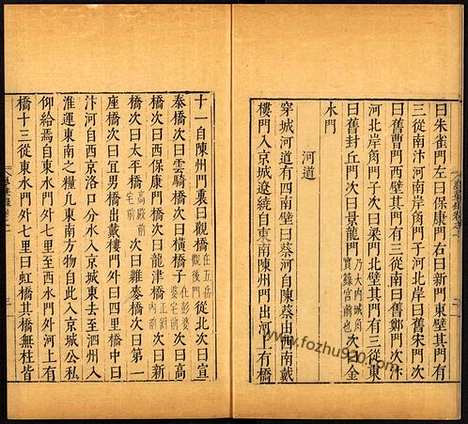 曰朱雀門左曰保康門右曰新門東壁其門有
三從南汴河南岸角門子河北岸曰舊宋門次
曰舊曹門西壁其門有三從南曰舊鄭門次汴
河北岸角門子次曰梁門北壁其門有三從東
曰舊封丘門次曰景龍門乃大内城角寶籙宫前也次曰金
水門
河道
穿城河道有四南壁曰蔡河自陳蔡由西南戴
樓門入京城遼繞自東南陳州門出河上有橋
十一自陳州門裏曰觀橋在五岳觀後門從北次曰宣
泰橋次曰雲騎橋次曰橫橋子在彭婆婆宅前次曰高
橋次曰西保康門橋次曰龍津橋正對内前次曰新
橋次曰太平橋高殿前宅前次曰糶麥橋次曰第一
座橋次曰宜男橋出戴樓門外曰四里橋中曰
汴河自西京洛口分水入京城東去至泗州入
淮運東南之糧凡東南方物自此入京城公私
仰給焉自東水門外七里至西水門外河上有
橋十三從東水門外七里曰虹橋其橋無柱皆
www.fozhu920.com